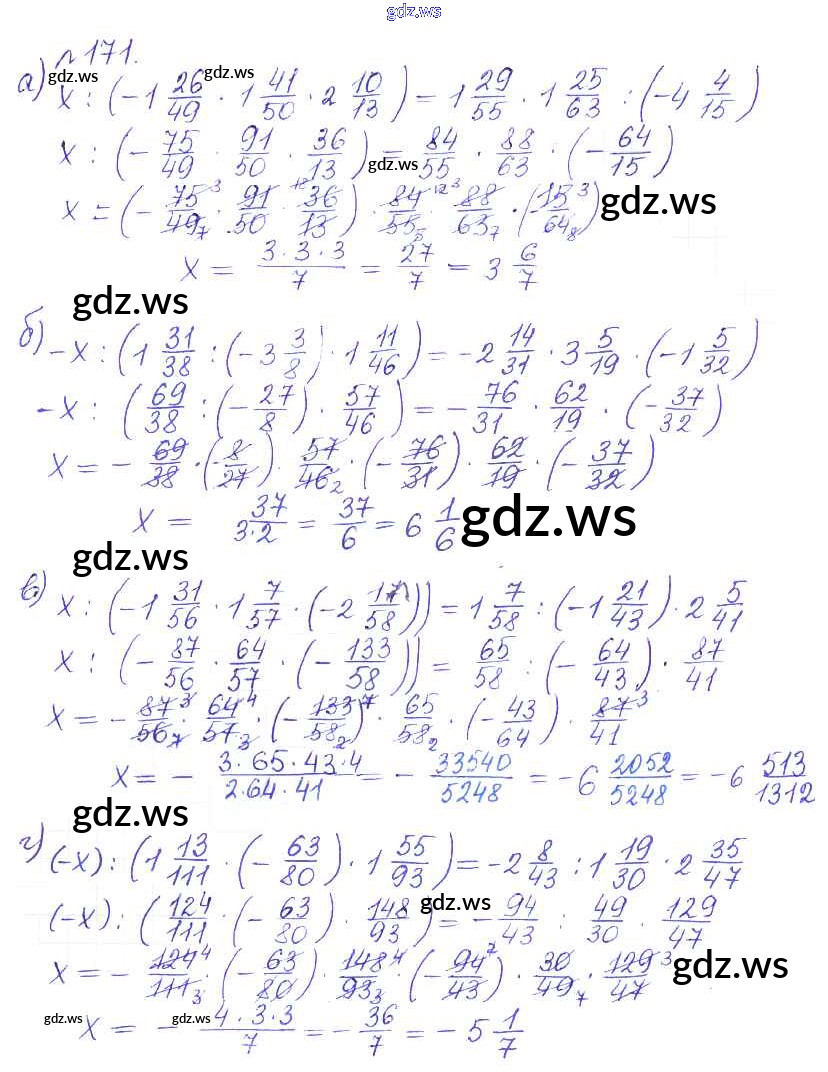 gdz.ws
№ 171.
а) x : (-1 26/49 · 1 41/50 · 2 10/13) = 1 29/55 · 1 25/63 : (-4 4/15)
gdz.ws gdz.ws
x : (-75/49 · 91/50 · 36/13) = 84/55 · 88/63 · (-64/15)
gdz.ws
x = (-75/49 · 91/50 · 36/13) · 84/55 · 88/63 · (-15/64)
gdz.ws
x = 3·3·3/7 = 27/7 = 3 6/7
gdz.ws
б) -x : (1 31/38 : (-3 3/8) · 1 11/46) = -2 14/31 · 3 5/19 · (-1 5/32)
-x : (69/38 : (-27/8) · 57/46) = -76/31 · 62/19 · (-37/32)
x = -69/38 · (-8/27) · 57/46 · (-76/31) · 62/19 · (-37/32)
x = 37/3·2 = 37/6 = 6 1/6
gdz.ws
gdz.ws
в) x : (-1 31/56 · 1 7/57 · (-2 17/58)) = 1 7/58 : (-1 21/43) · 2 5/41
x : (-87/56 · 64/57 · (-133/58)) = 65/58 : (-64/43) · 87/41
x = -87/56 · 64/57 · (-133/58) · 65/58 · (-43/64) · 87/41
x = - 3·65·43·4/2·64·41 = - 33540/5248 = -6 2052/5248 = -6 513/1312
gdz.ws
г) (-x) : (1 13/111 · (-63/80) · 1 55/93) = -2 8/43 : 1 19/30 · 2 35/47
(-x) : (124/111 · (-63/80) · 148/93) = -94/43 : 49/30 · 129/47
gdz.ws
x = -124/111 · (-63/80) · 148/93 · (-94/43) · 30/49 · 129/47
gdz.ws
x = - 4·3·3/7 = -36/7 = -5 1/7
gdz.ws gdz.ws